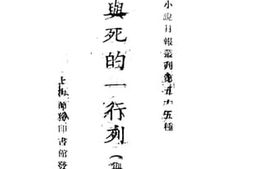 小說月報叢刊第五十五種
與死的一行列(
上海商務印書館發